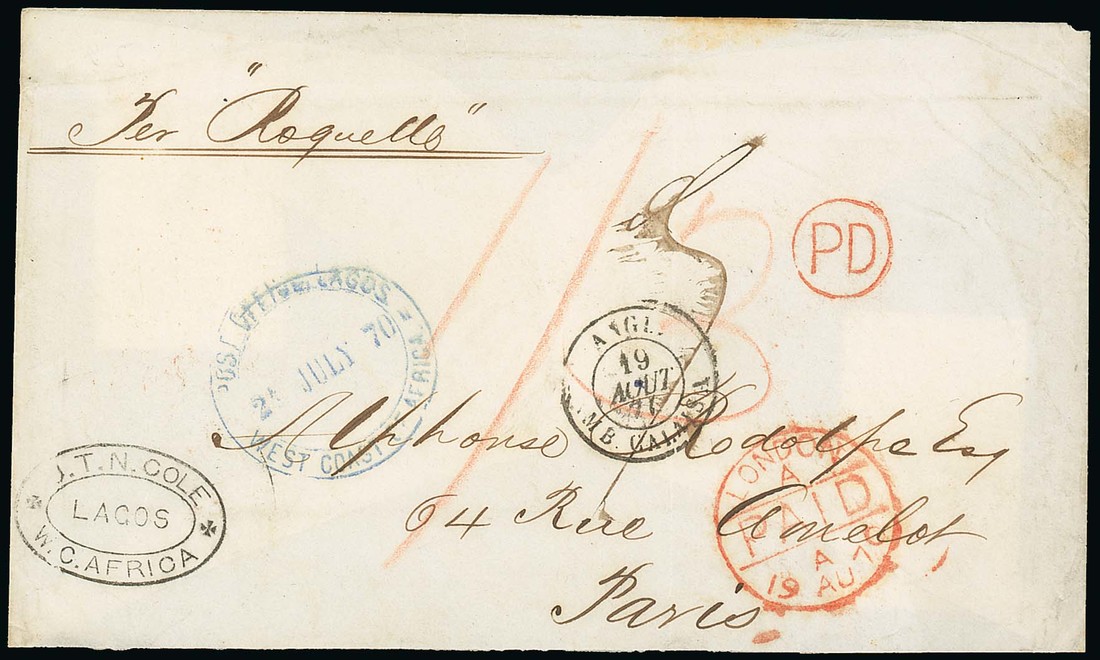 Per "Roquelle"
1/3
PD
POST OFFICE, LAGOS
JULY 70
WEST COAST OF AFRICA
ANGL.
19
AOUT
AMB. CALAIS
Alphonse Rodolphe Esq
64 Rue Amelot
Paris
J.T.N. COLE
LAGOS
W.C. AFRICA
LONDON
A
PAID
A
19 AU 70